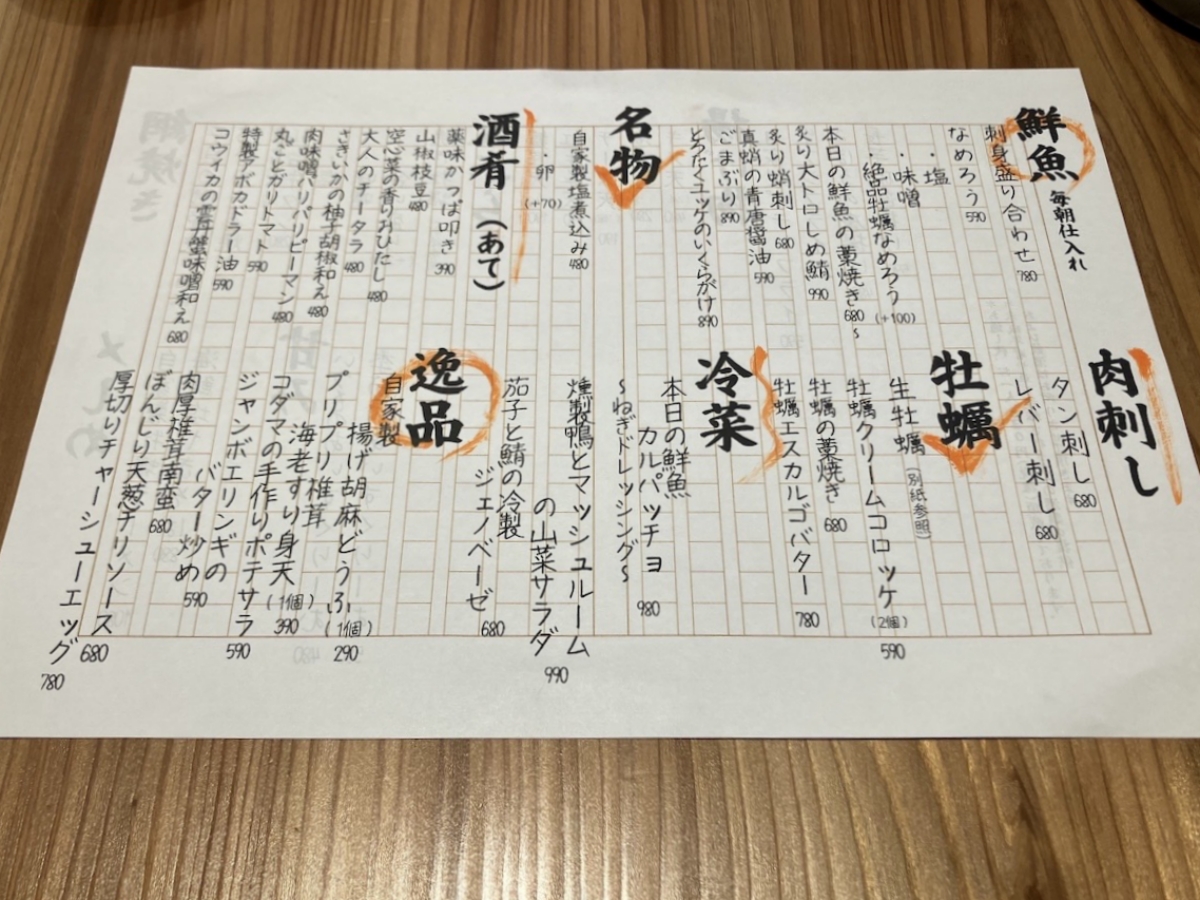 鮮魚 毎朝仕入れ
刺身盛り合わせ 780
なめろう 590
・塩
・味噌
・絶品牡蠣なめろう (+100)
本日の鮮魚の藁焼き 680〜
炙り大トロしめ鯖 990
炙り蛸刺し 680
真蛸の青唐醤油 590
ごまぶり 890
とろたくユッケのいくらがけ 890
名物
自家製塩煮込み 480
・卵 (+70)
酒肴(あて)
薬味かっぱ叩き 390
山椒枝豆 480
空心菜の青りおひたし 480
大人のチータラ 480
さきいかの柚子胡椒和え 480
肉味噌パリパリピーマン 480
丸ごとガリトマト 590
特製アボカドラー油 590
コウイカの雲丹蟹味噌和え 680
肉刺し
タン刺し 680
レバー刺し 680
牡蠣
生牡蠣 (別紙参照)
牡蠣クリームコロッケ (2個) 590
牡蠣の藁焼き 680
牡蠣エスカルゴバター 780
冷菜
本日の鮮魚
カルパッチョ 980
〜ねぎドレッシング〜
燻製鴨とマッシュルーム
の山菜サラダ 990
茄子と鯖の冷製
ジェノベーゼ 680
逸品
自家製
揚げ胡麻どうふ (1個) 290
プリプリ椎茸
海老すり身天 (1個) 390
コダマの手作りポテサラ 590
ジャンボエリンギの
バター炒め 590
肉厚椎茸南蛮 680
ぼんじり天葱チリソース 680
厚切りチャーシューエッグ 780